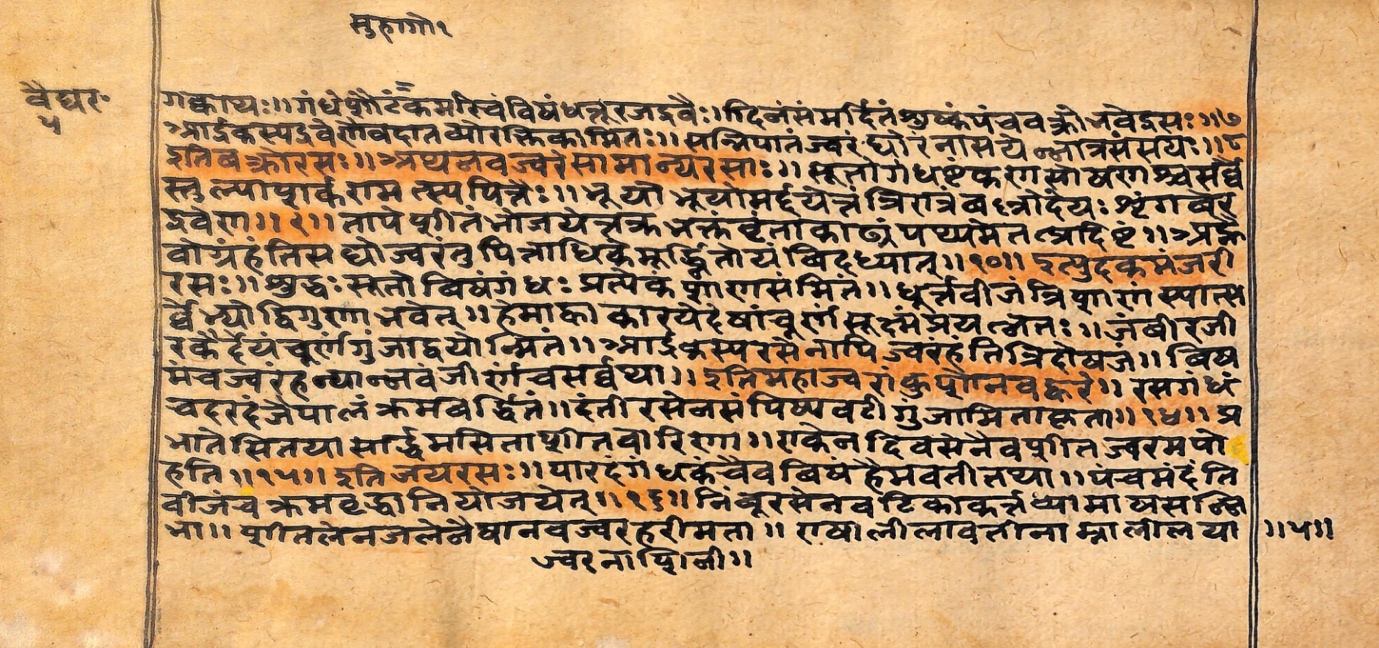 सुहागो१
वैद्यर॰
५
गक्वाथः॥ गंधं शौटंकमरिचं विषं धत्तूरजद्रवैः। दिनं संमर्दितं शुष्कं पंचवक्रो भवेद्रसः॥७
आर्द्रकस्य द्रवेणैव दातव्यो रक्तिकामितः॥ सन्निपातं ज्वरं घोरं नासयेन्नात्र संसयः॥८
इतिवक्रोरसः॥ अथ नवज्वरे सामान्यरसाः॥ सूतो गंधष्टंकण सोषण श्च सर्व्वै
स्तुल्या शर्करा मत्स्यपित्तैः॥ भूयो भूयो मर्द्दयेत्तं त्रिरात्रं वल्लो देयः शृंगवेर
द्रवेण॥९॥ तापे शीतं भोजयेत्तक्रभक्तं वृंताकाढ्यं पथ्यमेतत्प्रदिष्टं॥ अह्नै
वोग्रं हंति सद्यो ज्वरं तु पित्ताधिके मूर्द्ध्नि तोयं विदध्यात्॥१०॥ इत्युदकमंजरी
रसः॥ शुद्धः सूतो विषं गंधः प्रत्येकं शाणसंमितं॥ धूर्त्तवीजं त्रिशाणं स्यात्स
र्व्वेभ्यो द्विगुणा भवेत्॥ हेमाह्वा कारयेदेषां चूर्णं सूक्ष्मं प्रयत्नतः॥ जंबीरजी
रकैर्देयं चूर्णं गुंजाद्वयोन्मितं॥ आर्द्रकस्य रसेनापि ज्वरं हंति त्रिदोषजं॥ विष
मं च ज्वरं हन्यान्नवं जीर्णं च सर्व्वथा॥ इति महाज्वरांकुशो नवज्वरे॥ रसगंधं
च दरदं जैपालं क्रमवर्द्धितं॥ दंतीरसेन संपिष्य वटी गुंजामिता कृता॥१४॥ प्र
भाते सितया सार्द्धमसिता शीतवारिणा॥ एकेन दिवसेनैव शीतज्वरमपो
हति॥१५॥ इति जयरसः॥ पारदं गंधकं चैव विषं हैमवती तथा॥ पंचमं दंति
वीजं च क्रमवृद्धानि योजयेत्॥१६॥ निंबूरसेन वटिका कर्त्तव्या माषसन्नि
भा॥ शीतलेन जलेनैषा नवज्वरहरी मता॥ एषा लीलावती नाम्ना लीलया
॥५॥
ज्वरनाशिनी॥